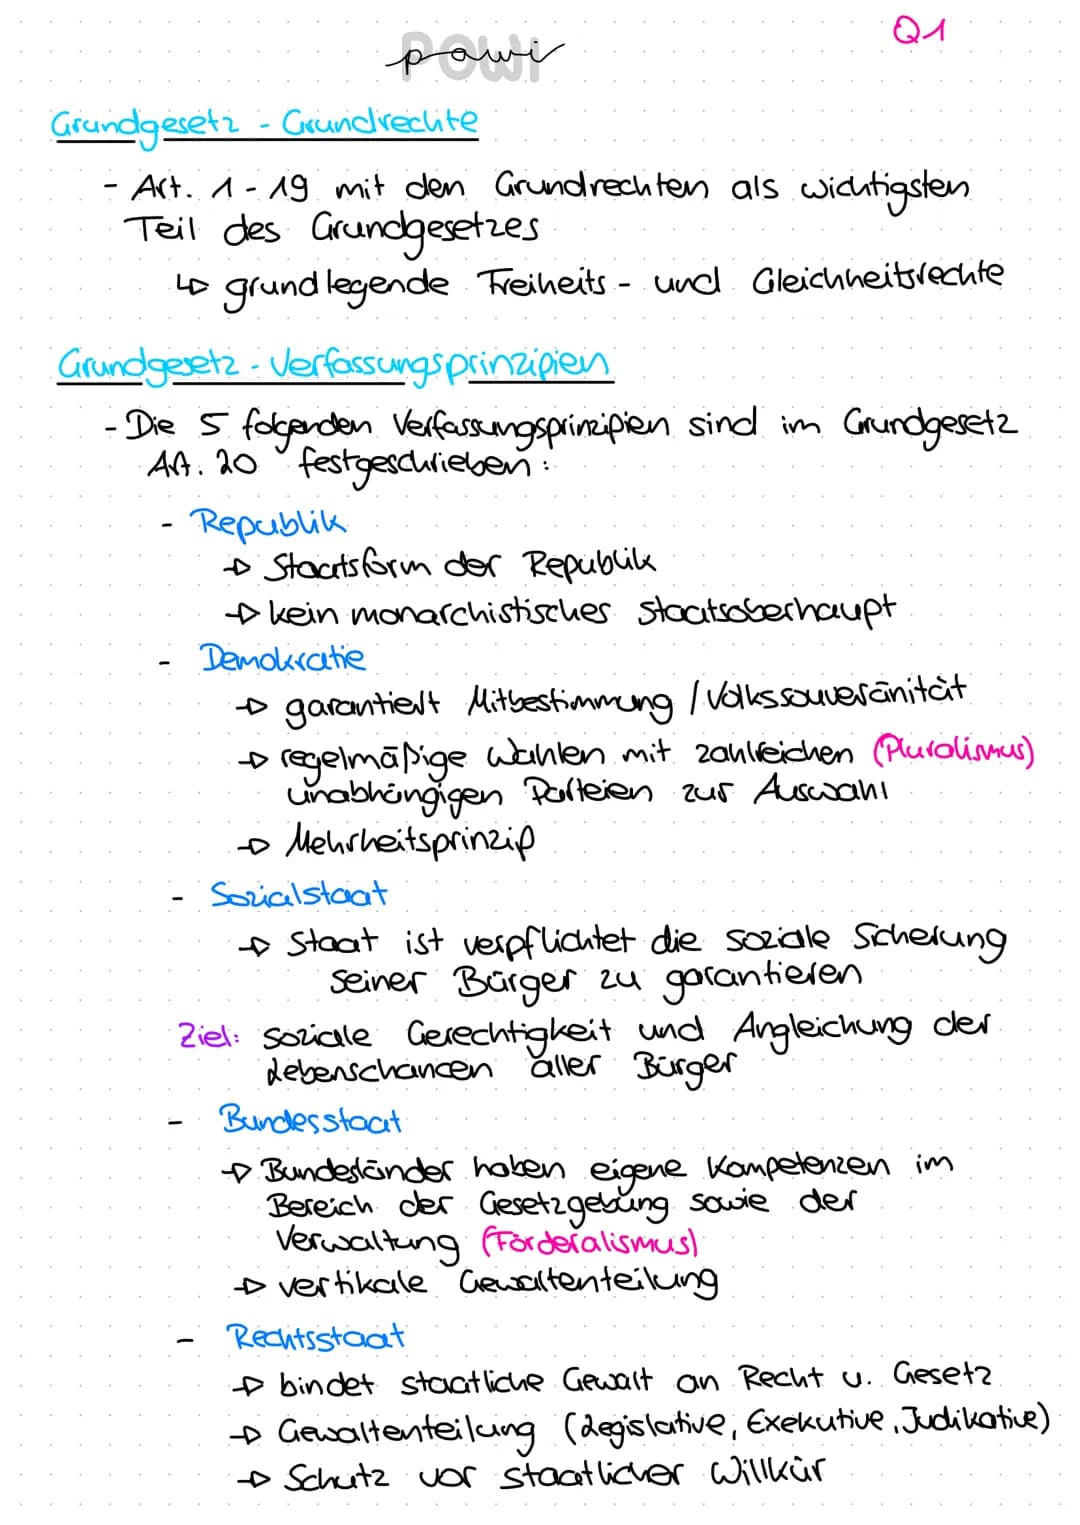 Q1
POWI
powi
Grundgesetz - Grundrechte
- Art. 1 - 19 mit den Grundrechten als wichtigsten
Teil des Grundgesetzes
↳ grundlegende Freiheits - und Gleichheitsrechte
Grundgesetz - Verfassungsprinzipien
- Die 5 folgenden Verfassungsprinzipien sind im Grundgesetz
Art. 20 festgeschrieben:
- Republik
→ Staatsform der Republik
→ kein monarchistisches Staatsoberhaupt
- Demokratie
→ garantiert Mitbestimmung / Volkssouveränität
→ regelmäßige Wahlen mit zahlreichen (Pluralismus)
unabhängigen Parteien zur Auswahl
→ Mehrheitsprinzip
- Sozialstaat
→ Staat ist verpflichtet die soziale Scherung
seiner Bürger zu garantieren
Ziel: soziale Gerechtigkeit und Angleichung der
Lebenschancen aller Bürger
- Bundesstaat
→ Bundesländer haben eigene Kompetenzen im
Bereich der Gesetzgebung sowie der
Verwaltung (Förderalismus)
→ vertikale Gewaltenteilung
- Rechtsstaat
→ bindet staatliche Gewalt an Recht u. Gesetz
→ Gewaltenteilung (Legislative, Exekutive, Judikative)
→ Schutz vor staatlicher Willkür